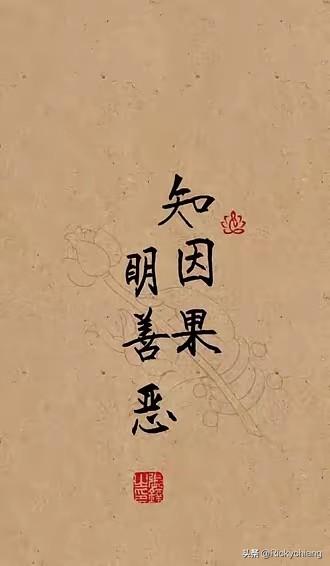 知因果
明善恶
头条 @Rickychieng